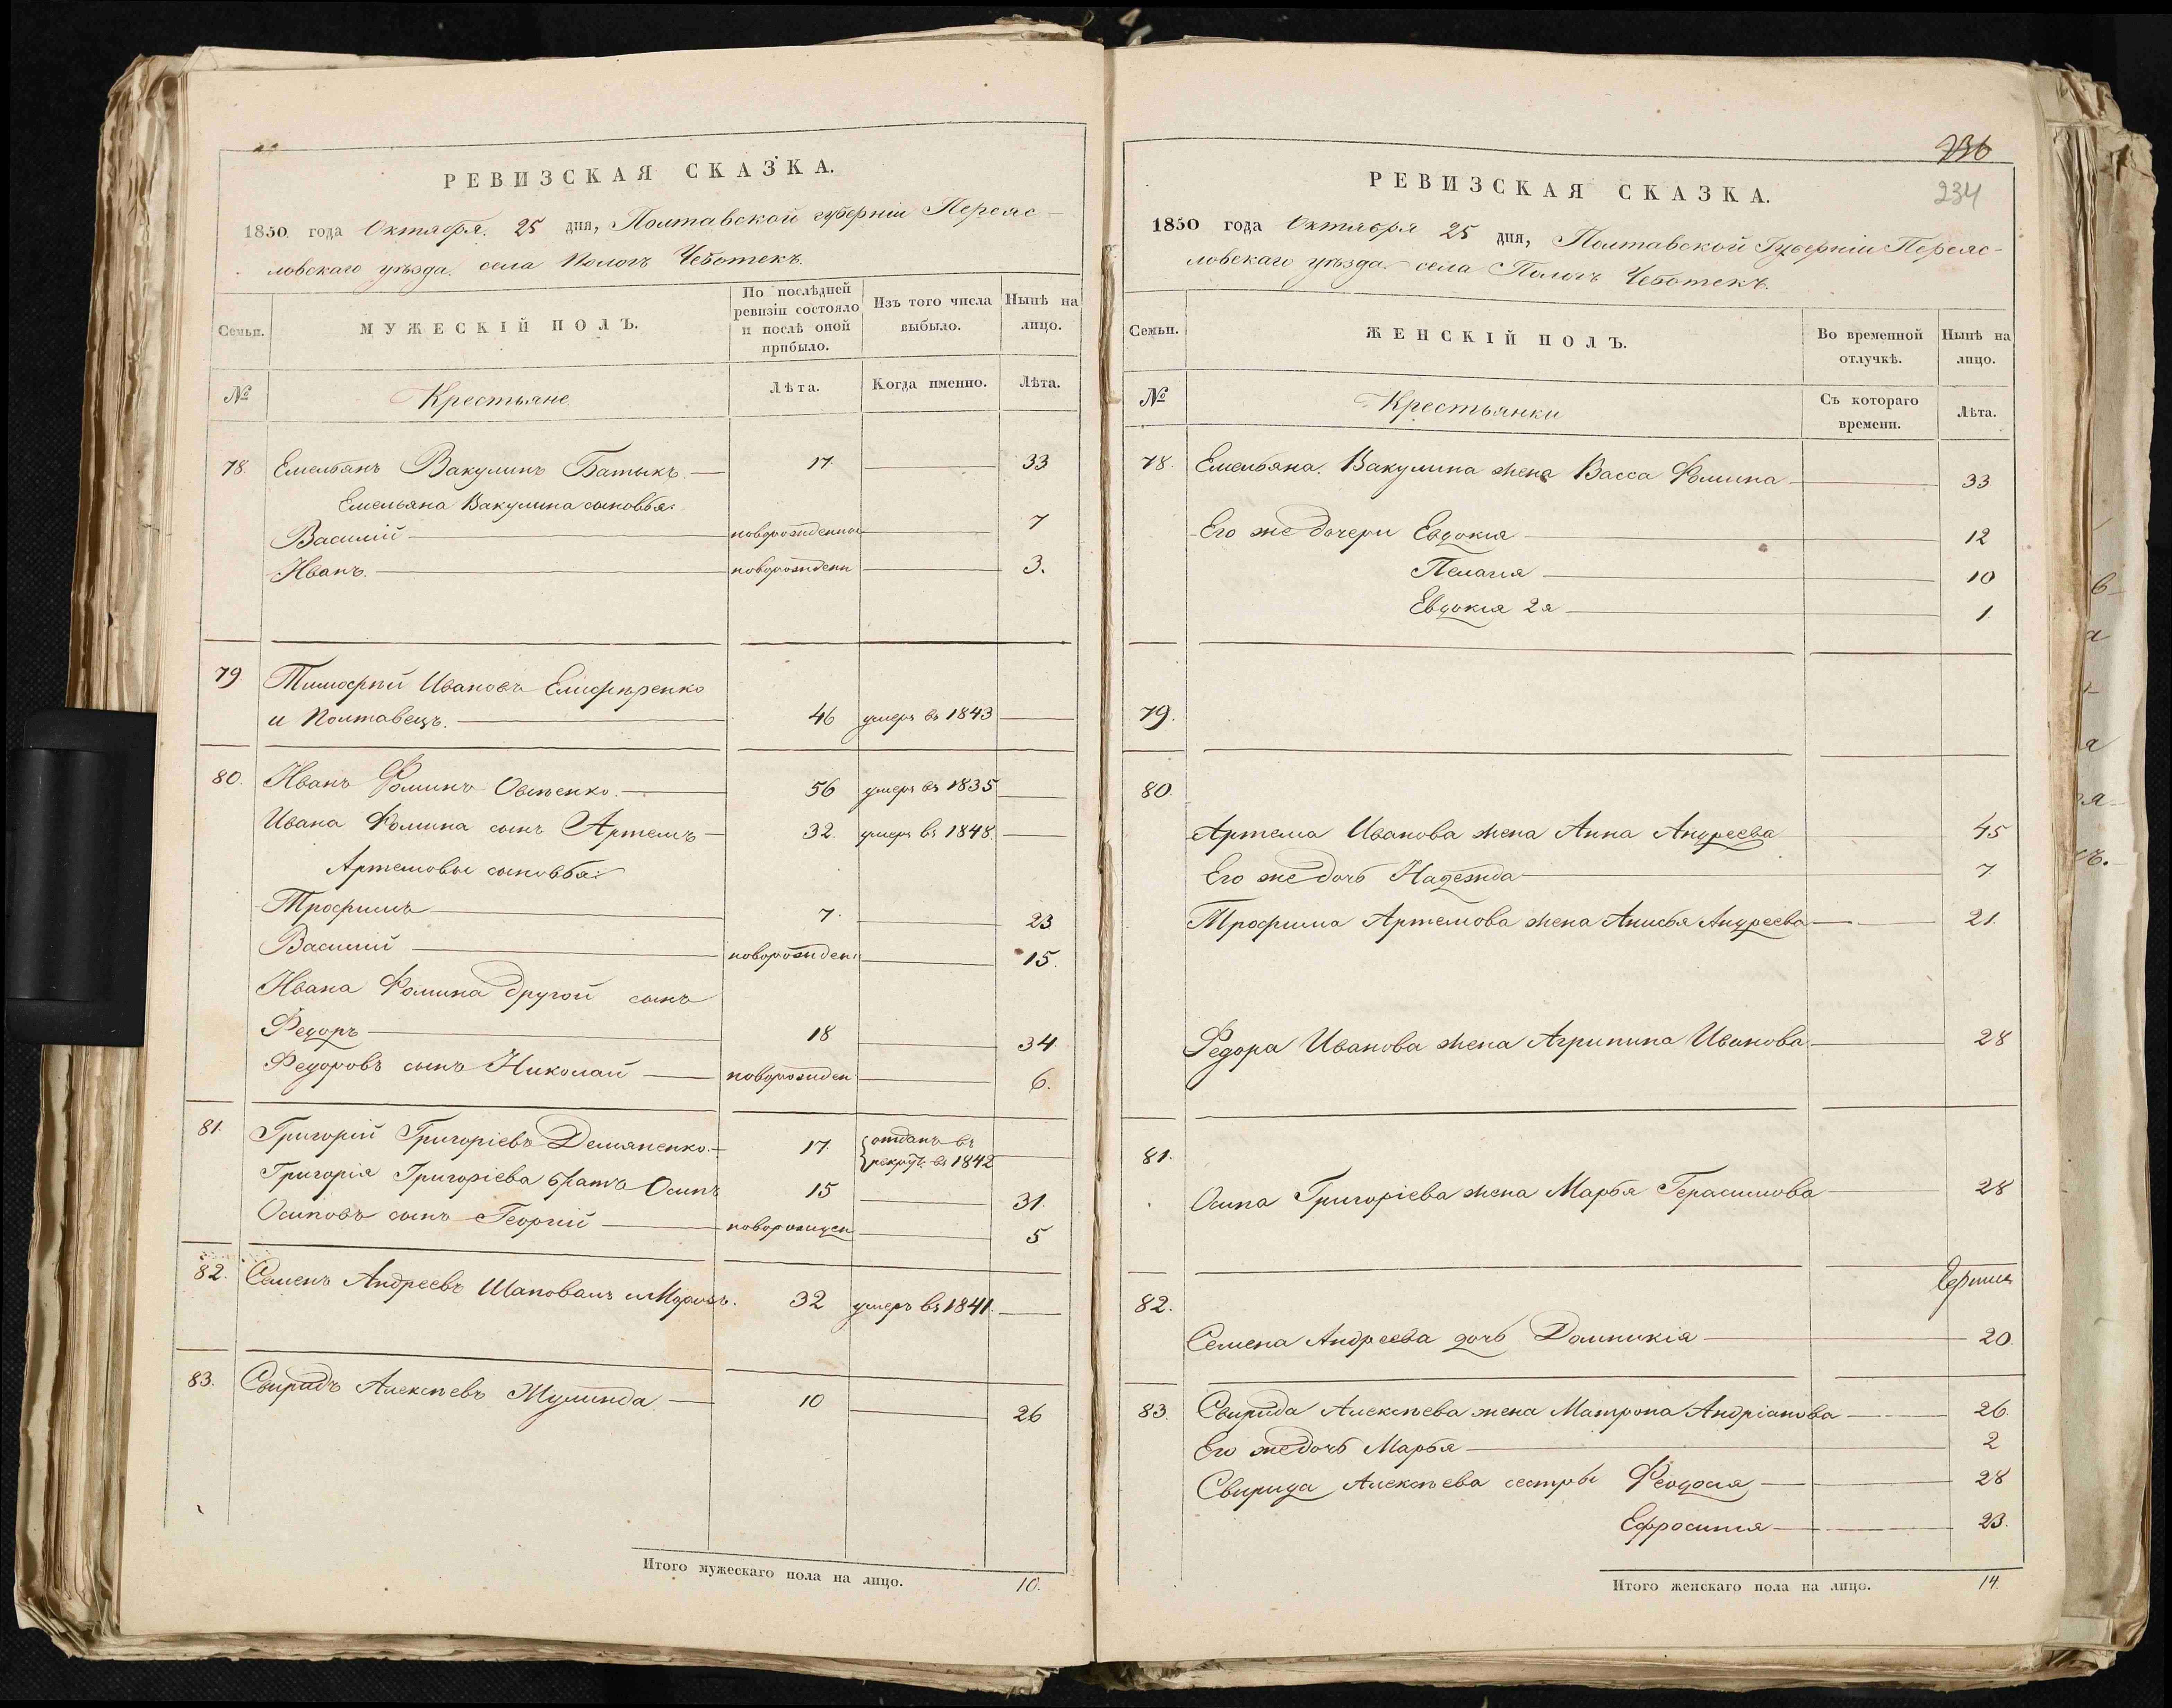 РЕВИЗСКАЯ СКАЗКА.
1850 года Октября 25 дня, Полтавской губерніи Переяс-
ловскаго уѣзда. села Пологъ Чеботекъ.
Семьи.
МУЖЕСКІЙ ПОЛЪ.
По послѣдней ревизіи состояло и послѣ оной прибыло.
Изъ того числа выбыло.
Нынѣ на лицо.
№
Крестьяне
Лѣта.
Когда именно.
Лѣта.
78. Емельянъ Вакулинъ Батыкъ 17. 33
Емельяна Вакулина сыновья:
Василій новорожденной 7
Иванъ. новорожден 3.
79 Тимофѣй Ивановъ Елифѣренко
и Полтавецъ. 46 умеръ въ 1843
80. Иванъ Фоминъ Овсѣенко. 56 умеръ въ 1835
Ивана Фомина сынъ Артемъ 32. умеръ въ 1848.
Артемовы сыновья:
Трофимъ 7. 23
Василій новорожден 15.
Ивана Фомина другой сынъ
Федоръ 18 34
Федоровъ сынъ Николай новорожден 6.
81. Григорій Григоріевъ Демяненко. 17. отданъ въ
рекрут. въ 1842
Григорія Григоріева братъ Осипъ 15 31.
Осиповъ сынъ Георгій новорожден 5
82. Семенъ Андреевъ Шаповалъ 32 умеръ въ 1841.
83. Свиридъ Алексѣевъ Жулинда 10 26
Итого мужескаго пола на лицо. 10.
236
234
РЕВИЗСКАЯ СКАЗКА.
1850 года Октября 25 дня, Полтавской Губерніи Переяс-
ловскаго уѣзда. села Пологъ Чеботекъ.
Семьи.
ЖЕНСКІЙ ПОЛЪ.
Во временной отлучкѣ.
Нынѣ на лицо.
№
Крестьянки
Съ котораго времени.
Лѣта.
78. Емельяна Вакулина жена Васса Фомина 33
Его же дочери Евдокія 12
Пелагія 10
Евдокія 2я 1
79.
80.
Артема Иванова жена Анна Андреева 45
Его же дочь Надежда 7
Трофима Артемова жена Анисья Андреева 21.
Федора Иванова жена Агрипина Иванова 28
81.
Осипа Григоріева жена Марья Герасимова 28
82.
Семена Андреева дочь Домникія 20.
83. Свирида Алексѣева жена Матрона Андріанова 26.
Его же дочь Марья 2
Свирида Алексѣева сестры Феодосія 28
Ефросинія 23.
Итого женскаго пола на лицо. 14.